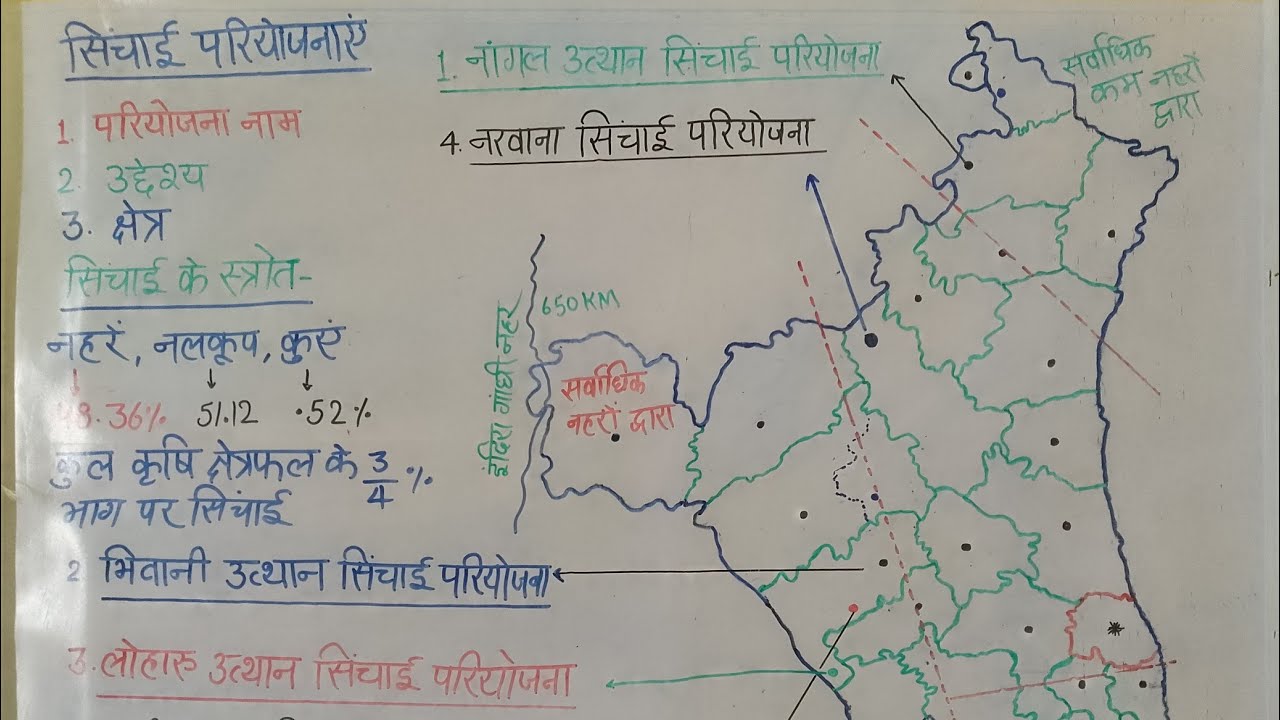 सिंचाई परियोजनाएं
1. परियोजना नाम
2. उद्देश्य
3. क्षेत्र
सिंचाई के स्त्रोत-
नहरें, नलकूप, कुएं
48.36% 51.12 .52%
कुल कृषि क्षेत्रफल के 3/4 %
भाग पर सिंचाई
1. नांगल उत्थान सिंचाई परियोजना
4. नरवाना सिंचाई परियोजना
सर्वाधिक
कम नहरों
द्वारा
650KM
इंदिरा गांधी नहर
सर्वाधिक
नहरों द्वारा
2 भिवानी उत्थान सिंचाई परियोजना
3. लोहारु उत्थान सिंचाई परियोजना